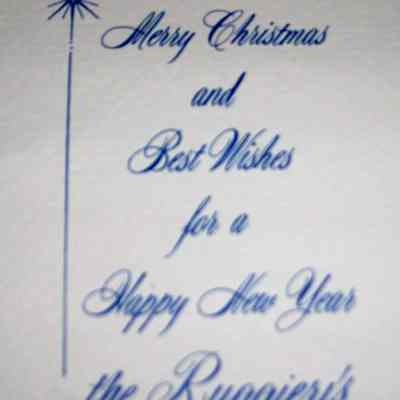 Merry Christmas
and
Best Wishes
for a
Happy New Year
the Ruggieri's